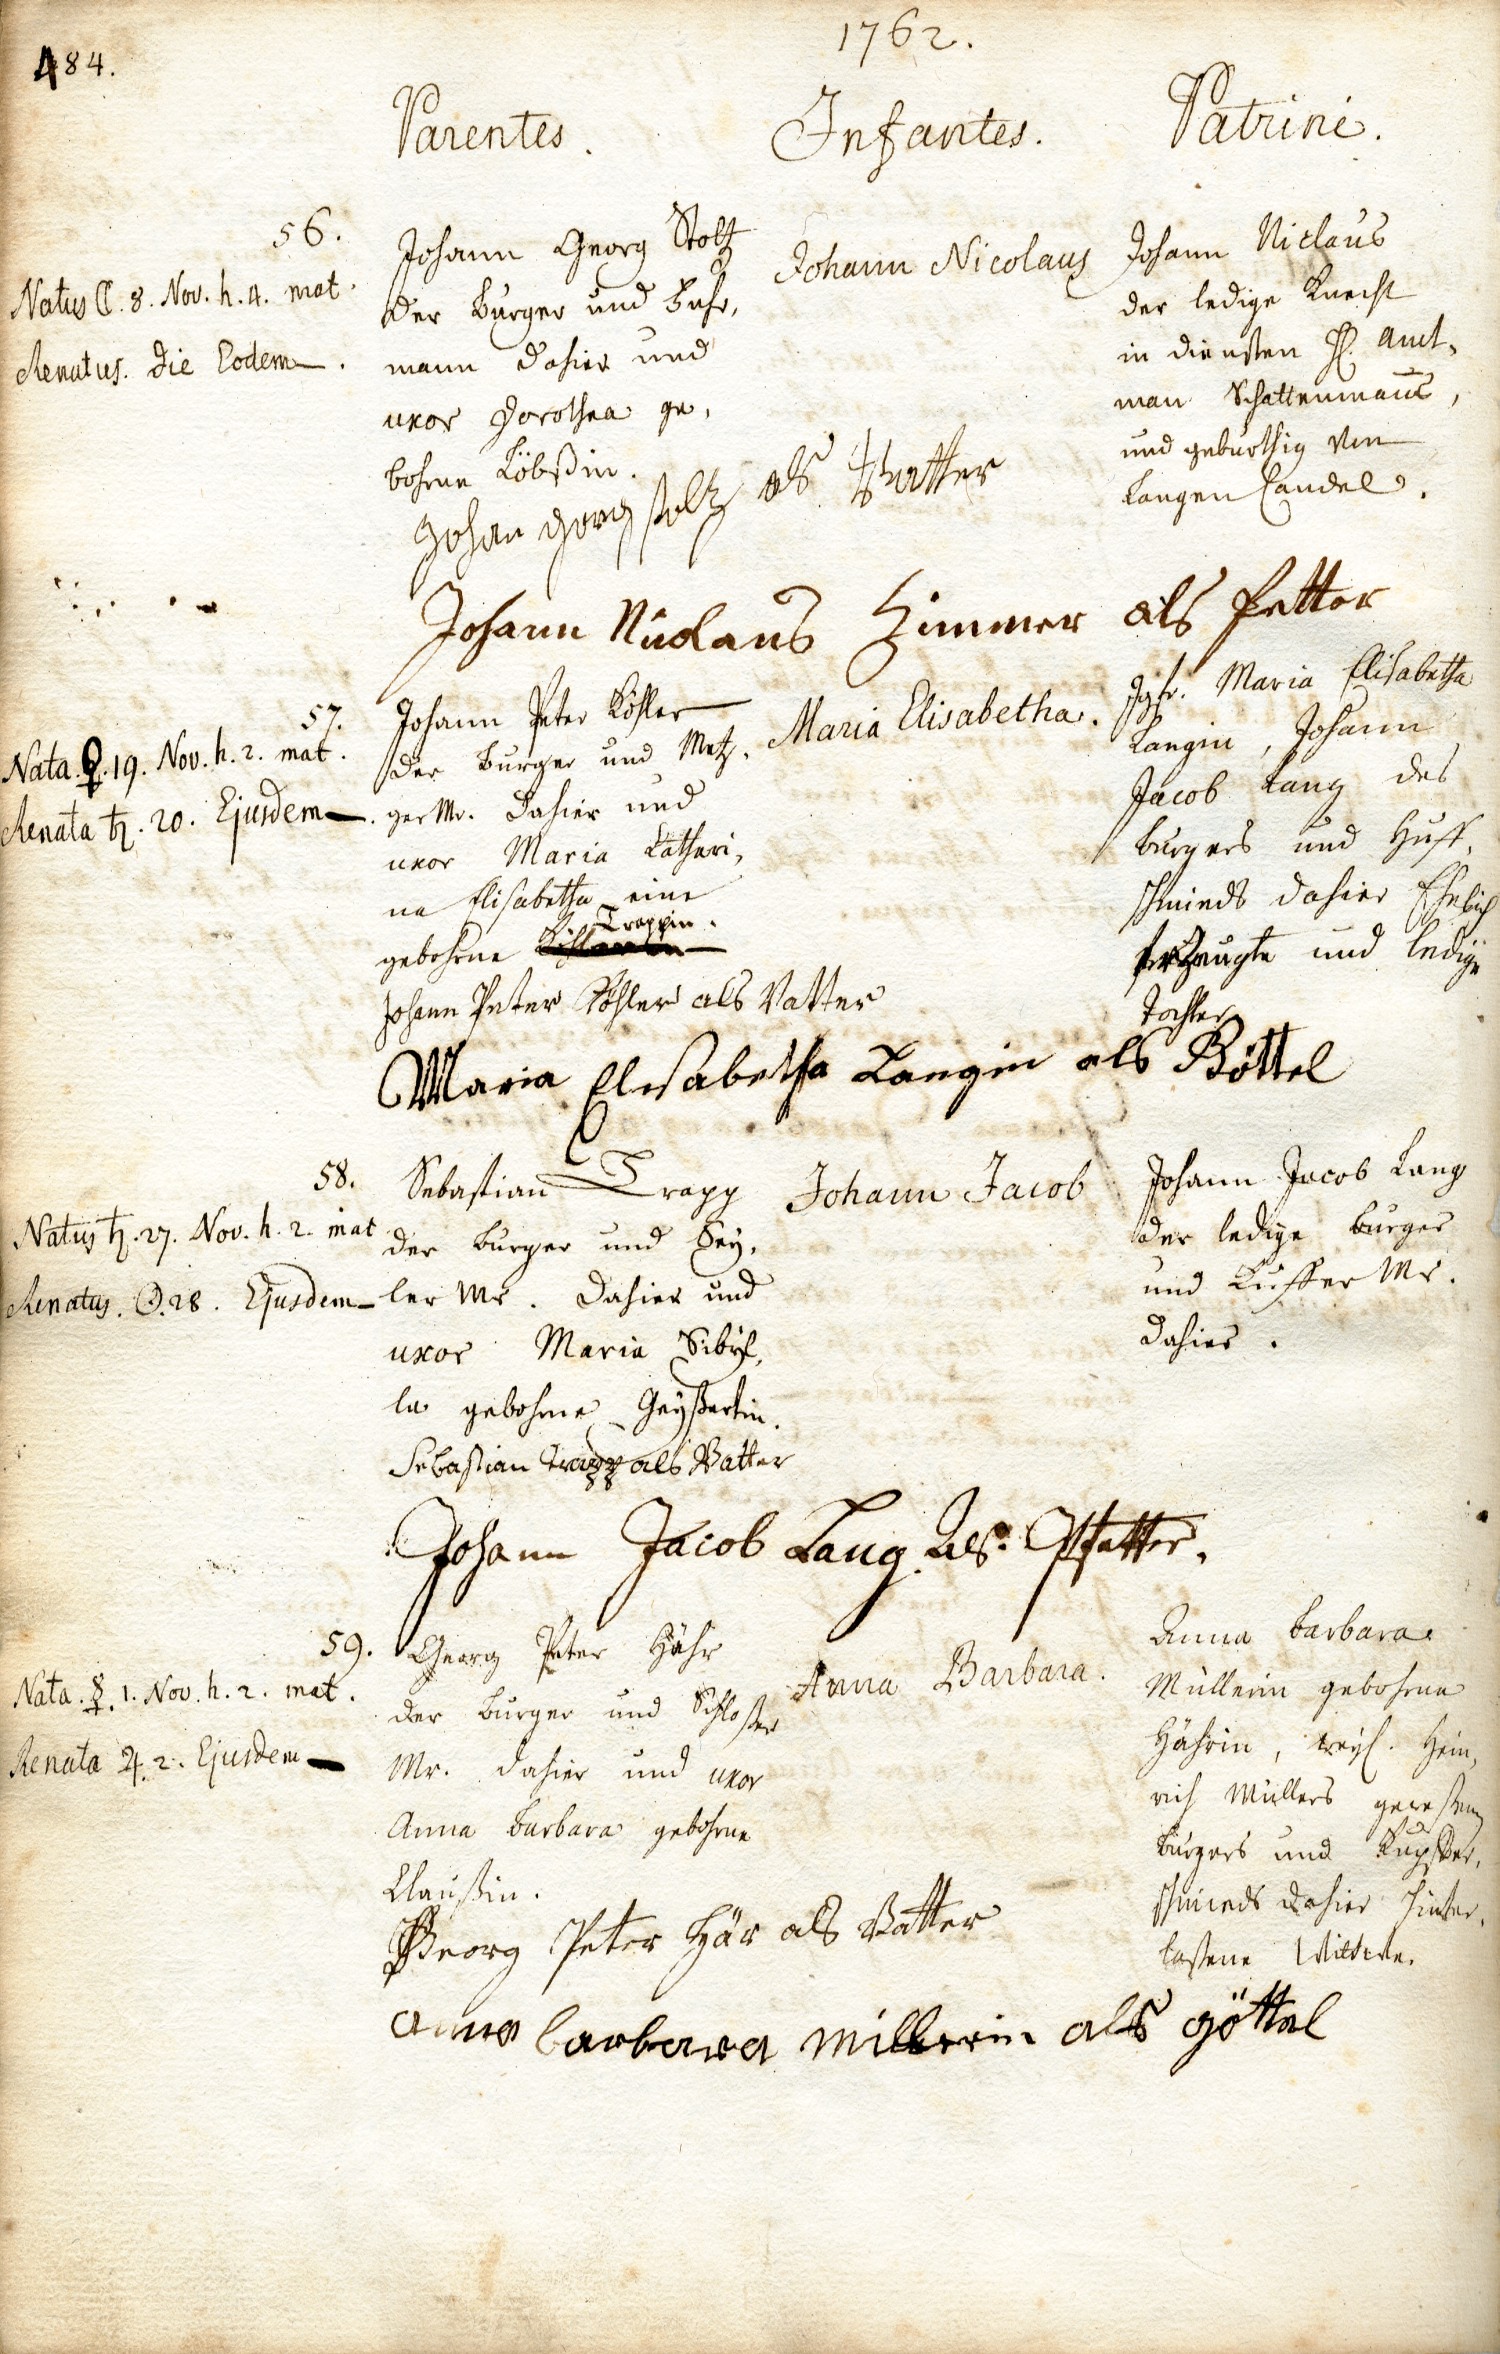 484.
1762.
Parentes.
Infantes.
Patrini.
56.
Natus ☾. 8. Nov. h. 4. mat.
Renatus. die Eodem.
Johann Georg Stoltz
der Burger und Fuhr,
mann dahier und
uxor Dorothea ge,
bohrne Löbßin.
Johann Nicolaus
Johann Niclaus
der ledige Knecht
in diensten H. Amt,
man Schattenmanns,
und geburthig von
Langen Candel.
Johan Gorg stoltz als Vatter
Johann Niclaus Zimmer als Petter
57.
Nata. ♀. 19. Nov. h. 2. mat.
Renata ♄. 20. Ejusdem.
Johann Peter Köhler
der Burger und Metz,
ger Mr. dahier und
uxor Maria Cathari,
na Elisabetha eine
Trappin.
gebohrne
Maria Elisabetha.
Jgfr. Maria Elisabetha
Langin, Johann
Jacob Lang des
burgers und Huff,
schmieds dahier Ehelich
erzeugte und ledige
Tochter
Johann Peter Köhler als Vatter
Maria Elisabetha Langin als Göttel
58.
Natus ♄. 27. Nov. h. 2. mat
Renatus. ☉. 28. Ejusdem
Sebastian Trapp
der Burger und Sey,
ler Mr. dahier und
uxor Maria Sibÿl,
la gebohrne Geyßertin.
Johann Jacob
Johann Jacob Lang
der ledige burger
und Kuffer Mr.
dahier.
Sebastian Trapp als Vatter
Johann Jacob Lang. Als. Pfetter.
59.
Nata. ☿. 1. Nov. h. 2. mat.
Renata ♃. 2. Ejusdem
Georg Peter Hähr
der Burger und Schloßer
Mr. dahier und uxor
Anna Barbara gebohrne
Claußin.
Anna Barbara.
Anna Barbara
Müllerin gebohrne
Hährin, weyl. Hein,
rich Müllers geweßenen
burgers und Kupffer,
schmieds dahier hinter,
laßene Wittwe.
Georg Peter Här als Vatter
anna barbara millerin als göttel